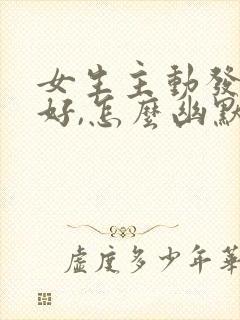 女生主動發
好,怎麼幽默
虛度多少年華